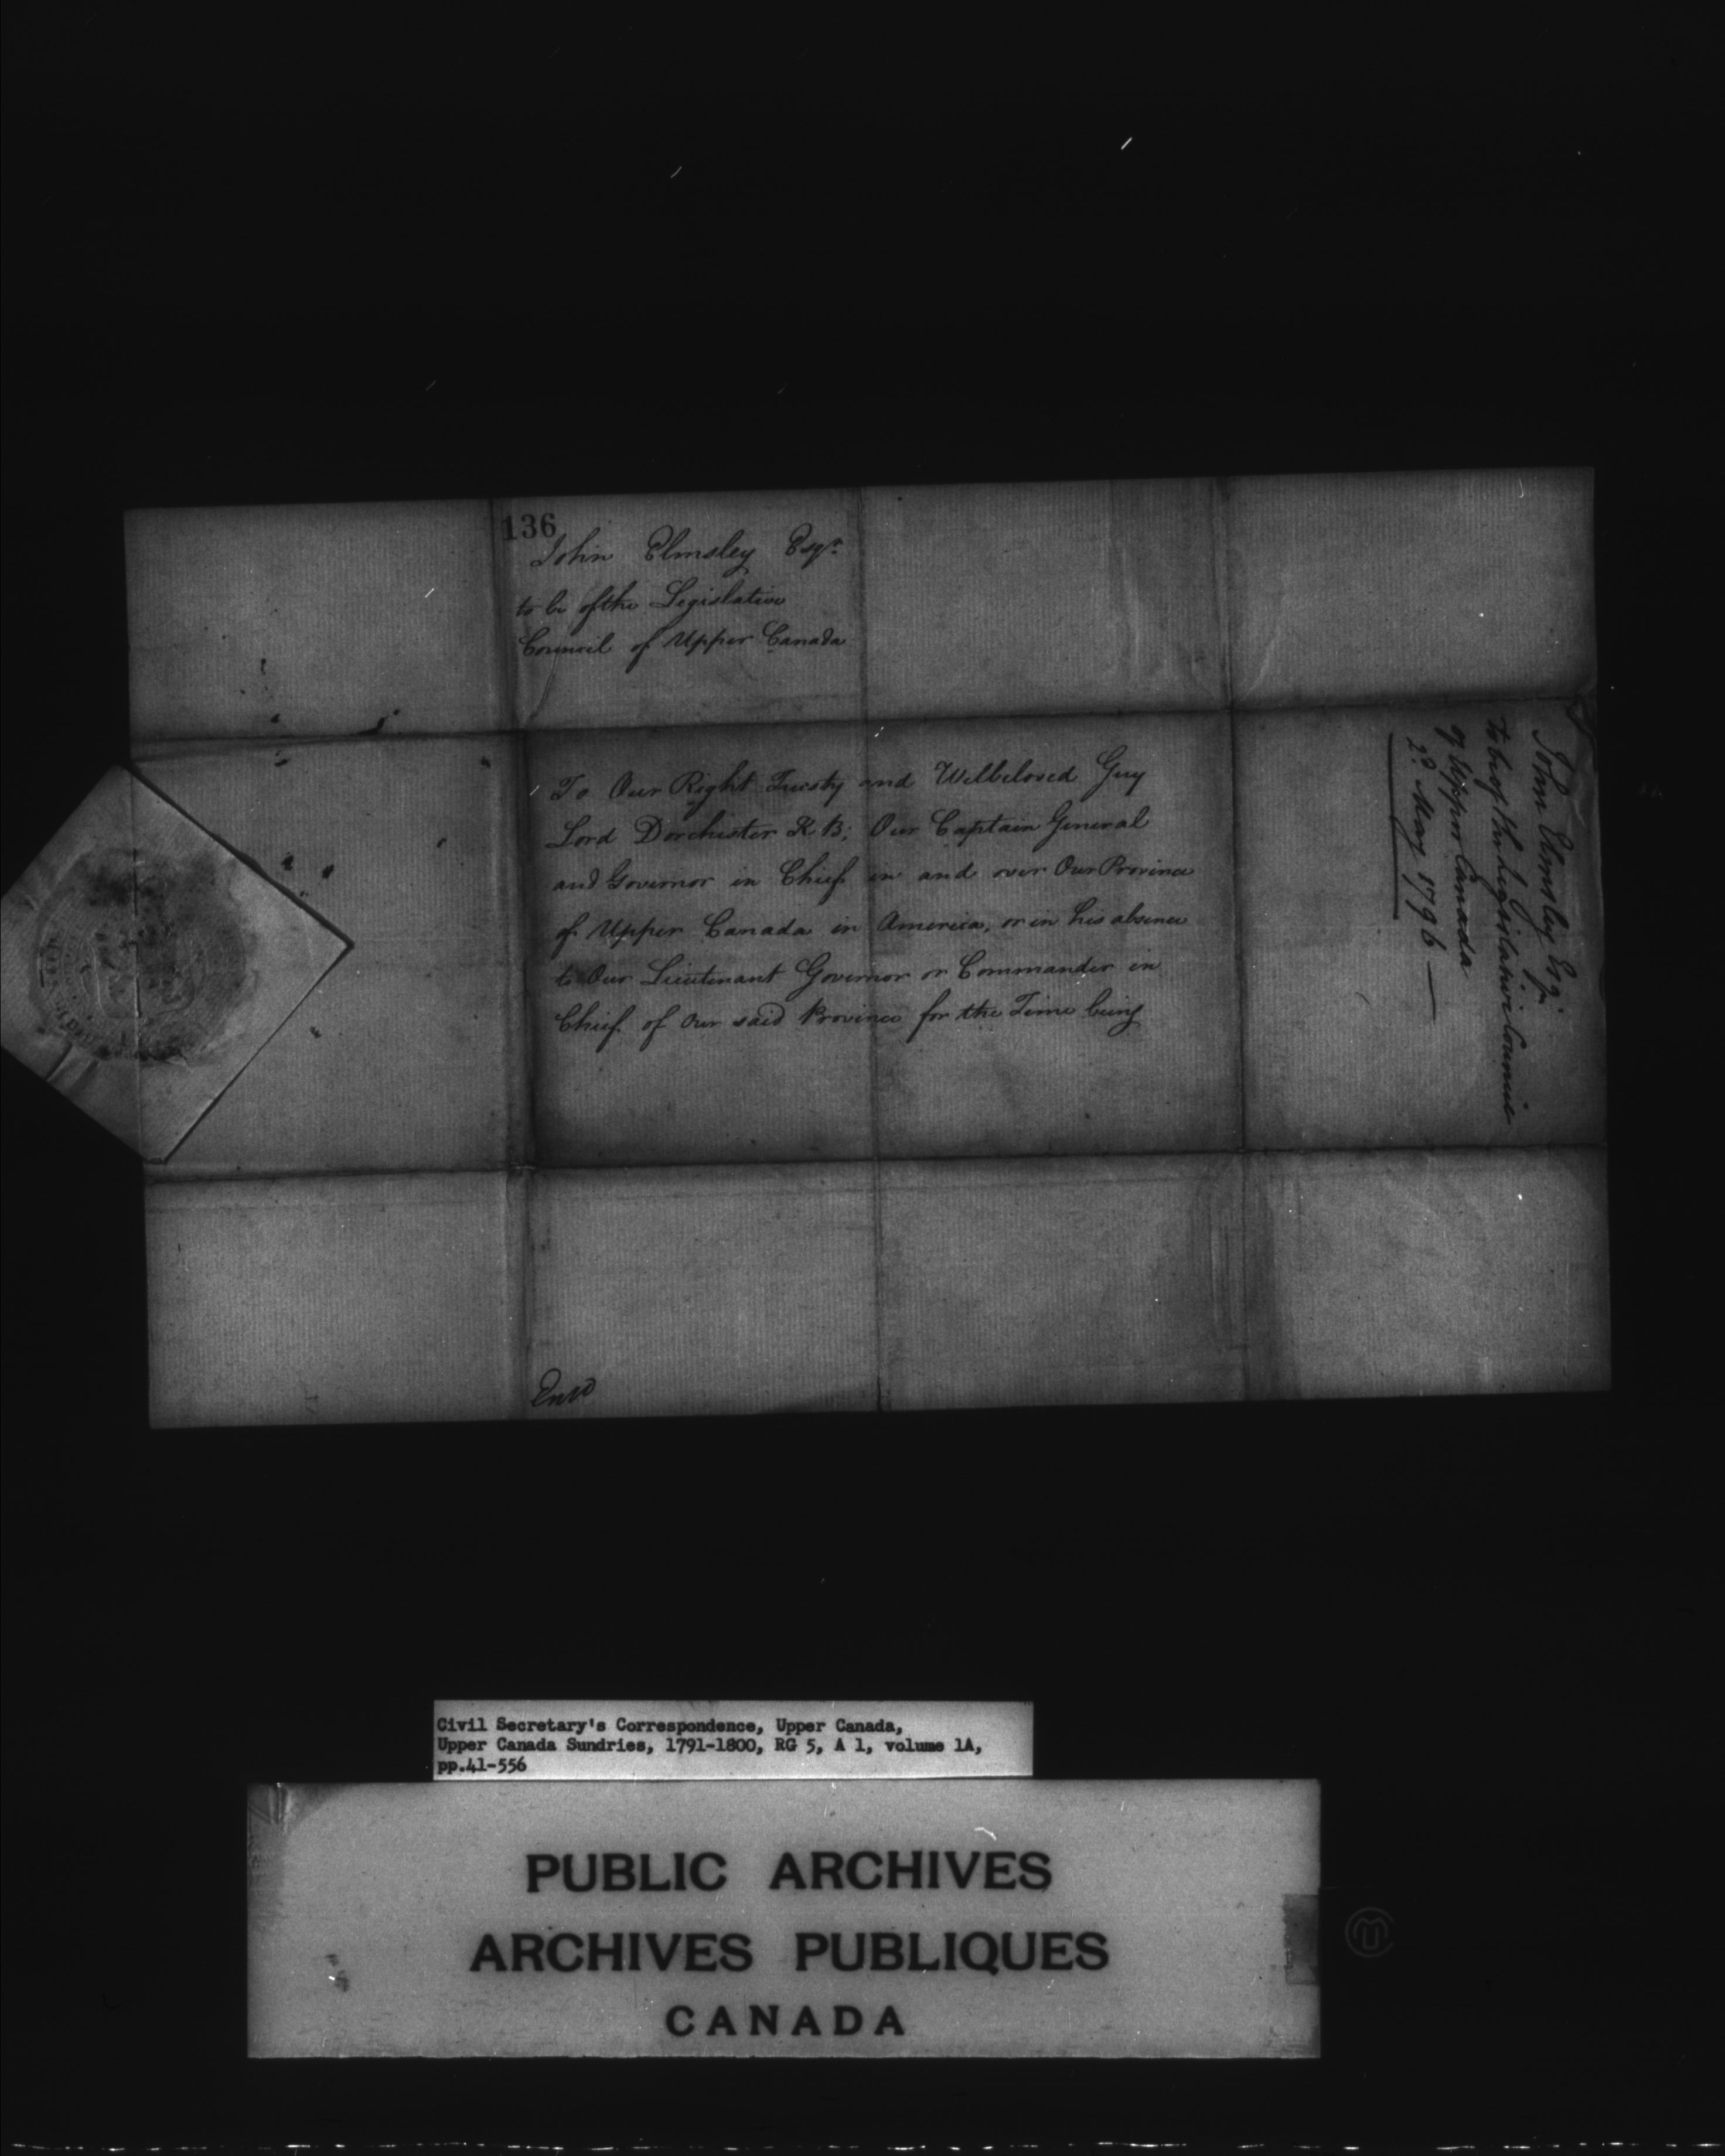 136
John Elmsley Esqr.
to be of the Legislative
Council of Upper Canada
To Our Right Trusty and Welbeloved Guy
Lord Dorchester K. B; Our Captain General
and Governor in Chief in and over Our Province
of Upper Canada in America, or in his absence
to Our Lieutenant Governor or Commander in
Chief of Our said Province for the Time being
John Elmsley Esq.
to be of the Legislative Council
of Upper Canada
2d. May 1796
Civil Secretary's Correspondence, Upper Canada,
Upper Canada Sundries, 1791-1800, RG 5, A 1, volume 1A,
pp.41-556
PUBLIC ARCHIVES
ARCHIVES PUBLIQUES
CANADA